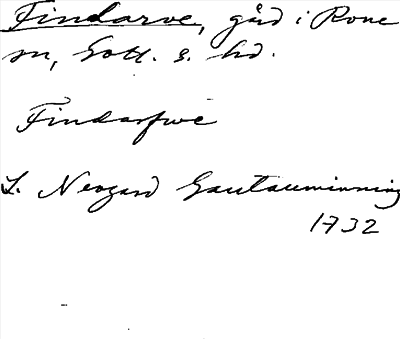 Findarve, gård i Rone
sn, Gotl. s. hd.
Findarfwe
L. Neogard Gautauminning
1732